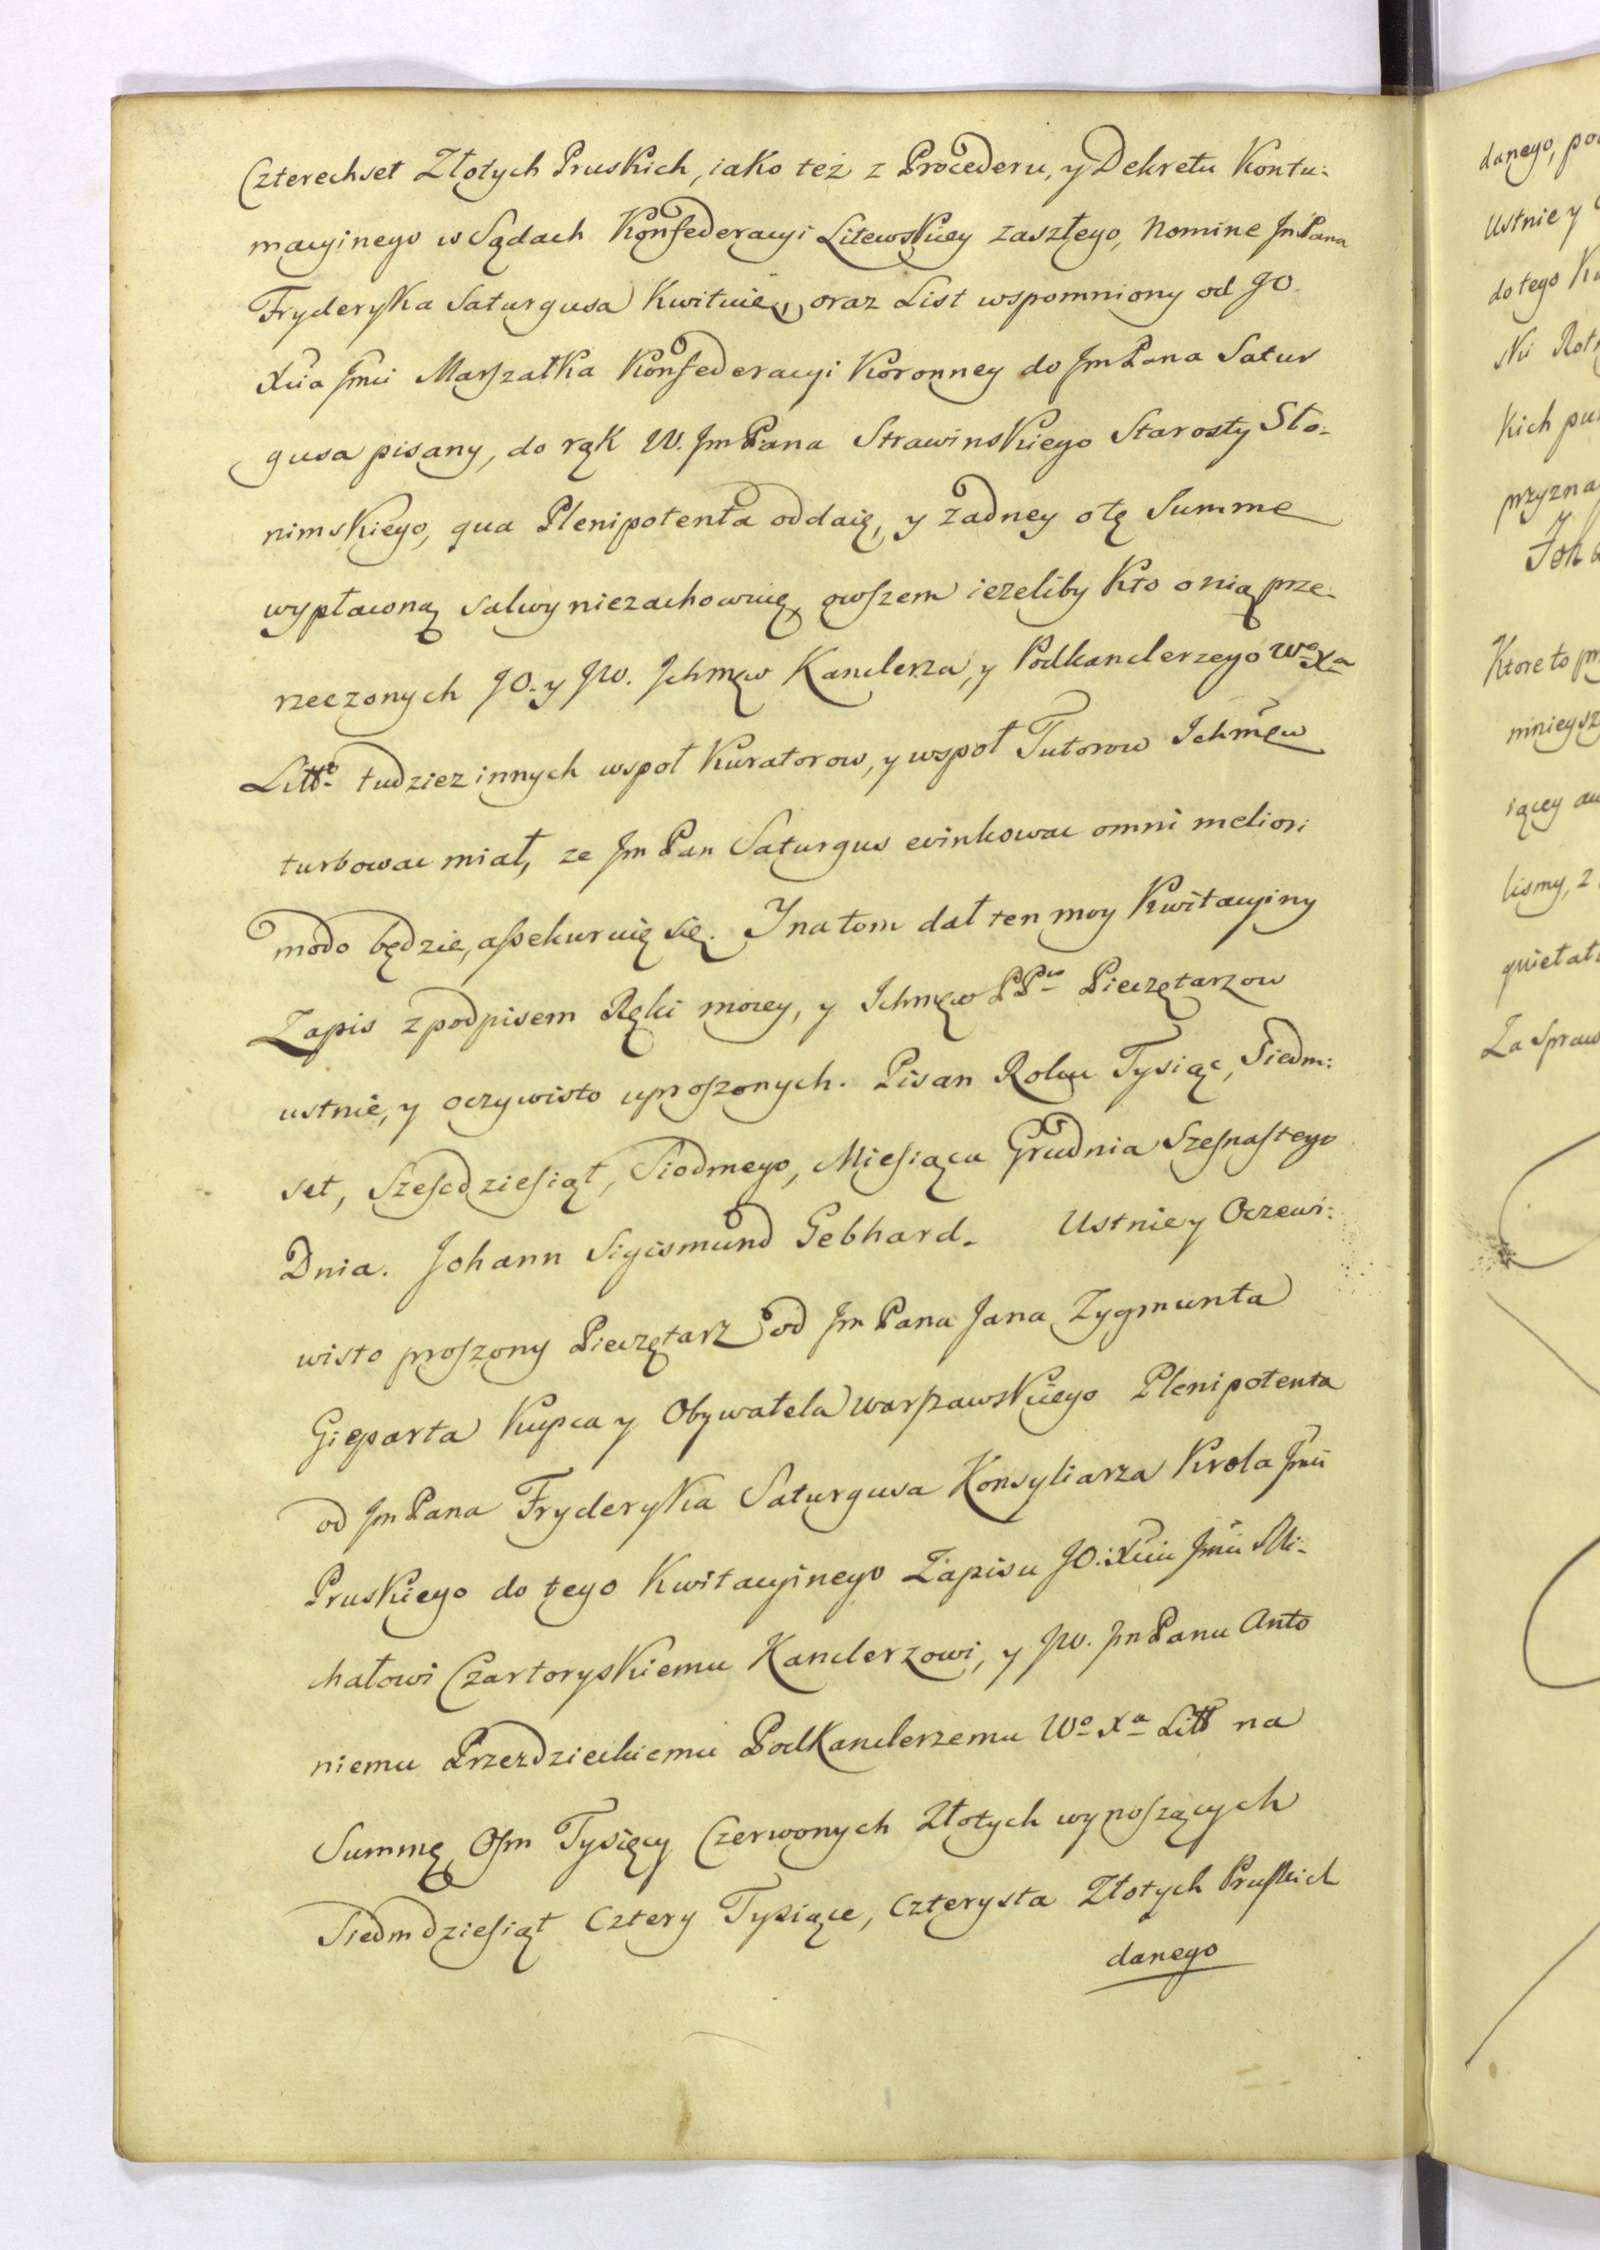 Czterechset Złotych Pruskich, iako też z Procederu, y Dekretu Kontu:
macyinego w Sądach Konfederacyi Litewskiey zaszłego, Nomine Jm Pana
Fryderyka Saturgusa Kwituię, oraz List wspomniony od JO
Xcia Jmci Marszałka Konfederacyi Koronney do Jm Pana Satur
gusa pisany, do rąk W. Jm Pana Strawinskiego Starosty Sło-
nimskiego, qua Plenipotenta oddaię, y żadney o tę Summę
wypłaconą salwy niezachowuię, owszem ieżeliby Kto o nią prze-
rzeczonych JO. y JW. Ichmćw Kanclerza, y Podkanclerzego Wo Xa
Litto tudziez innych wspoł Kuratorow, y wspoł Tutorow Ichmćw
turbowac miał, ze Jm Pan Saturgus ewinkowac omni meliori
modo będzie, assekuruię się. Y na tom dał ten moy Kwitacyiny
Zapis z podpisem Ręki moiey, y Ichmćw PPw Pieczętarzow
ustnie, y oczywisto uproszonych. Pisan Roku Tysiąc, Siedm:
set, Szescdziesiąt, Siodmego, Miesiąca Grudnia Szesnastego
Dnia. Johann Sigismund Gebhard. Ustnie y Oczewi:
wisto proszony Pieczętarz od Jm Pana Jana Zygmunta
Gieparta Kupca y Obywatela warszawskiego Plenipotenta
od Jm Pana Fryderyka Saturgusa Konsyliarza Krola Jmci
Pruskiego do tego Kwitacyinego Zapisu JO: Xciu Jmci Mi-
chałowi Czartoryskiemu Kanclerzowi, y JW. Jm Panu Anto
niemu Przezdzieckiemu Podkanclerzemu Wo Xa Litt na
Summę Osm Tysięcy Czerwonych Złotych wynoszących
Siedmdziesiąt Cztery Tysiące, Czterysta Złotych Pruskich
danego
danego,
Ustnie y
do tego
ski
Kich
przyzna
Ktore to
mnieysz
iącey
lismy, z
quietat
Za Spraw